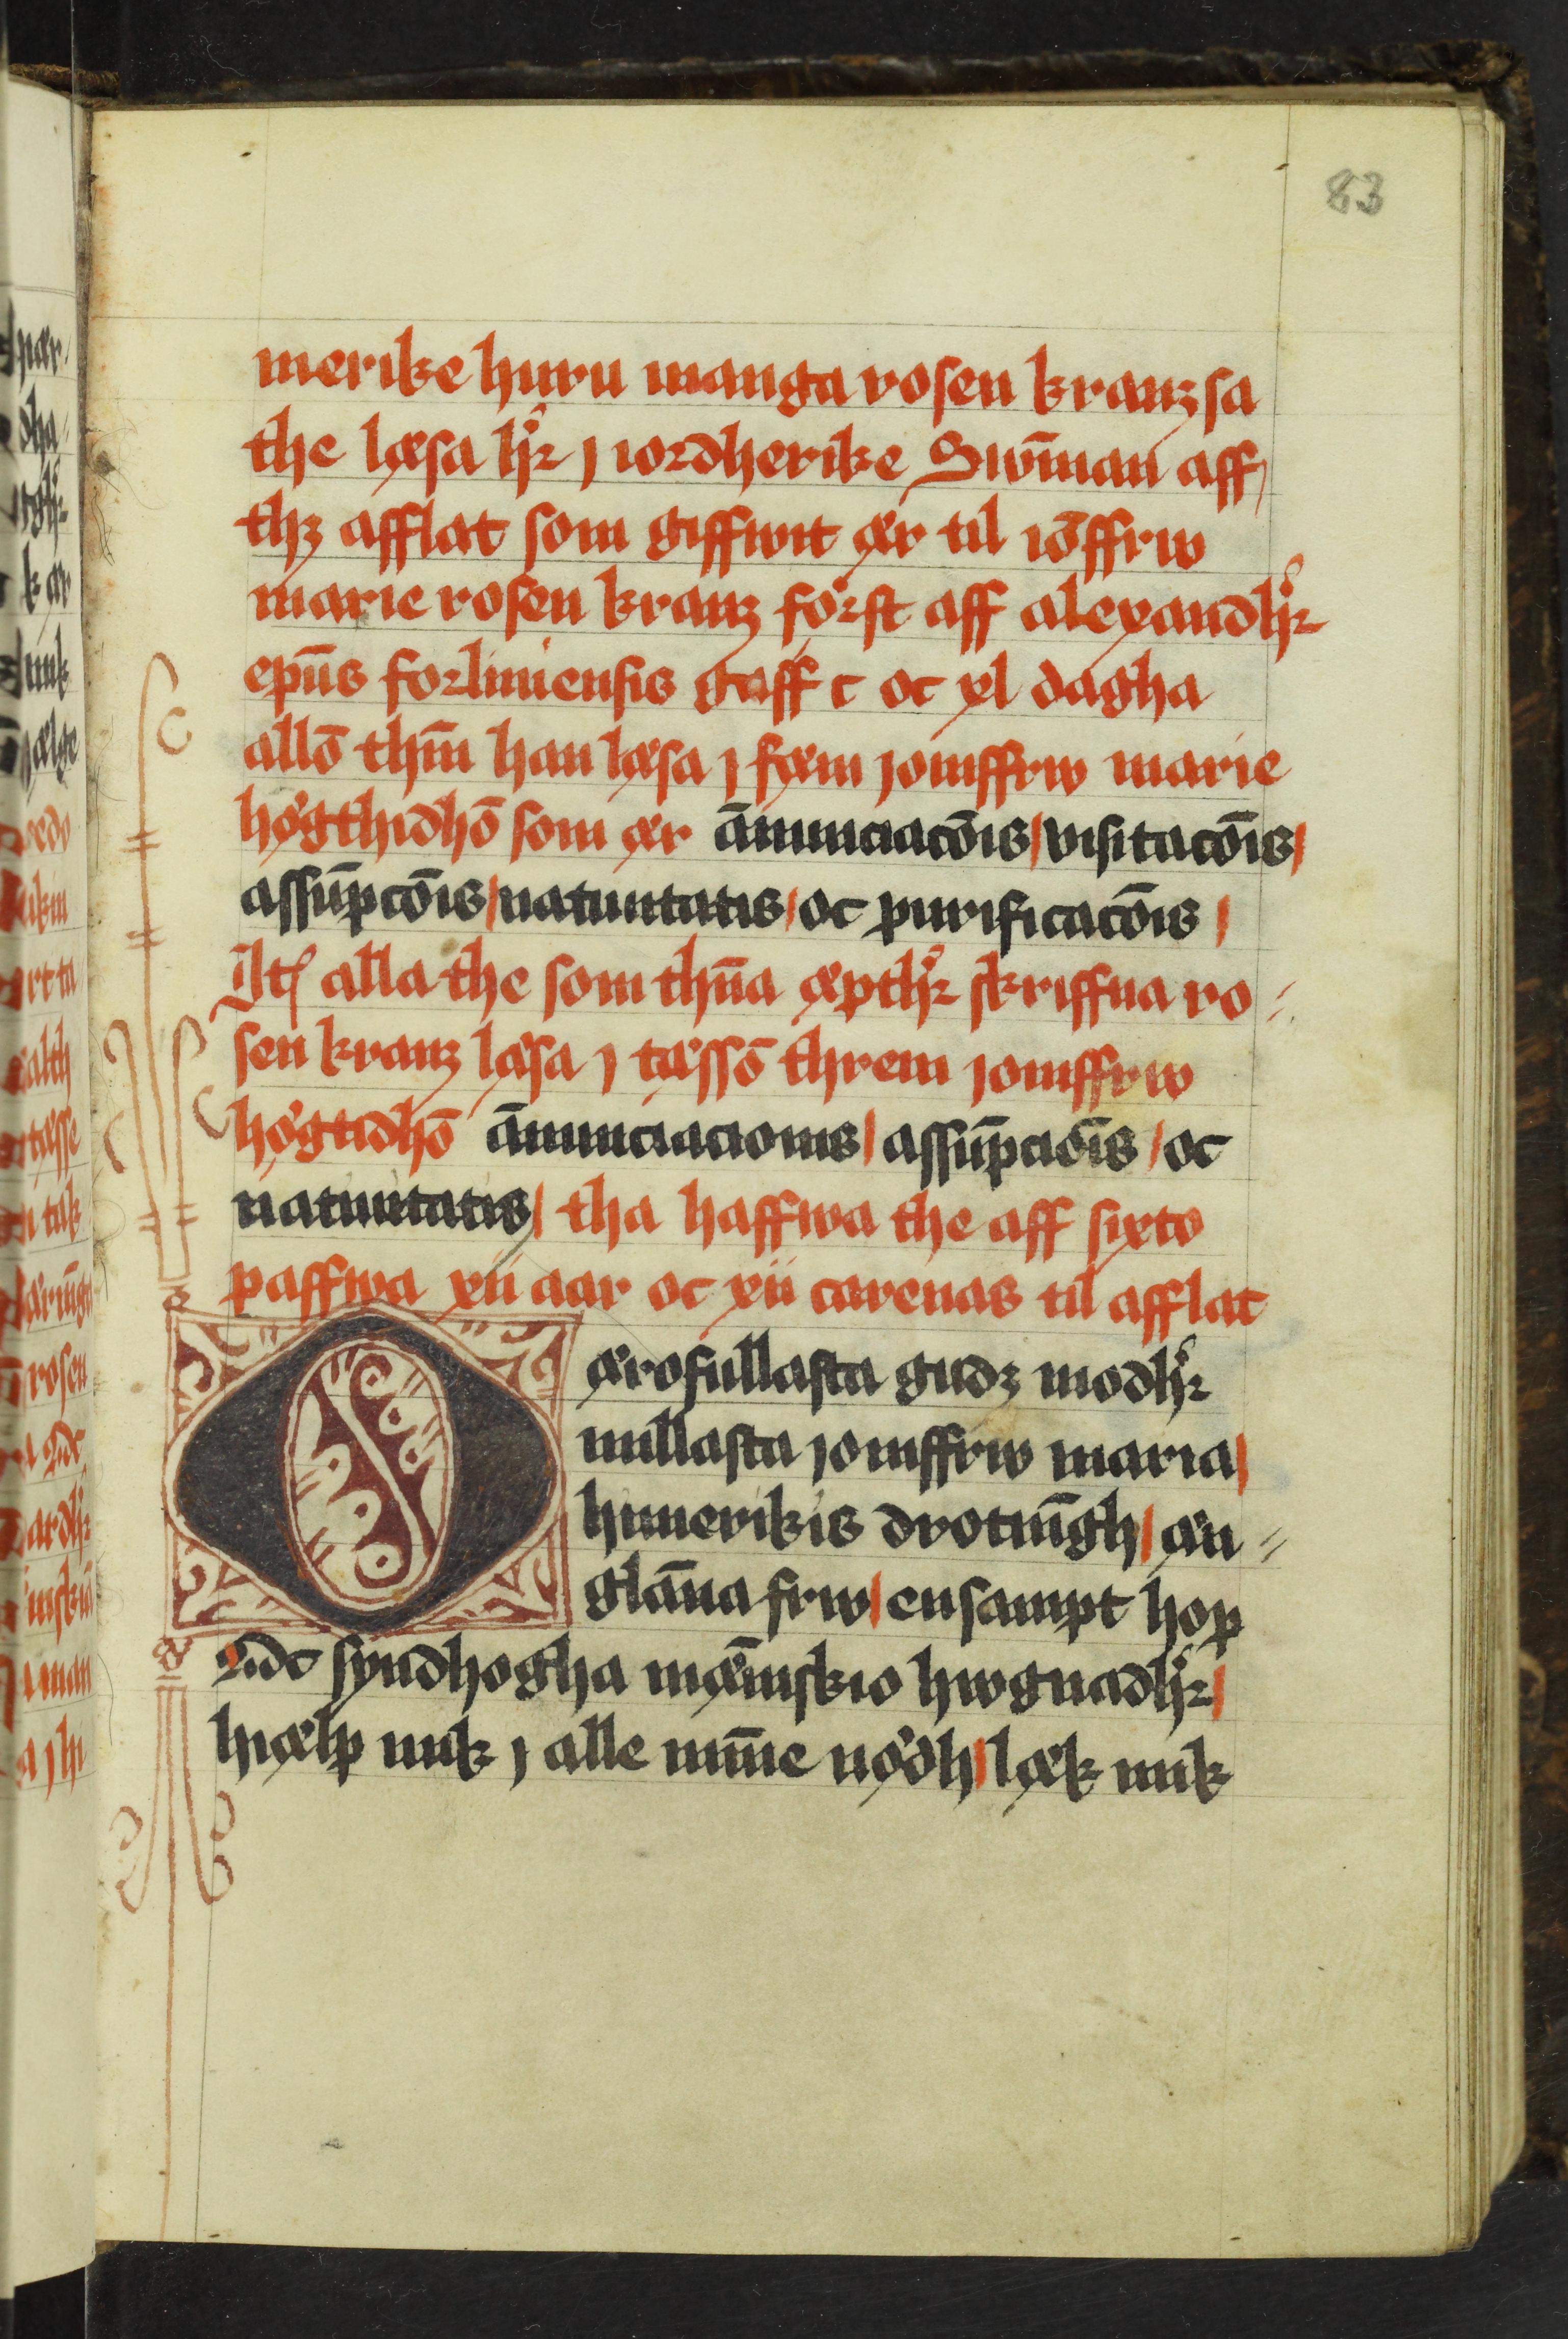 83
merike huru manga rosen kranzsa
the læsa hꝛ̉ j iordherike Swm̄an aff
thꝫ afflat som giffwit ær til iōffrw
marie rosen kranꝫ forst aff alexandhꝛ̉
epūs forliuiensis gaff c oc xl dagha
allō thm̄ han læsa j fæm jomffrw marie
høgthidhō som ær ān̄unciacōis / visitacōis /
assūpcōis / natiuitatis / oc purificacōis /
Jtꝭ alla the som thn̄a æpthꝛ̉ skriffna ro⸗
sen kranꝫ læsa j tæssō threm jomffrw
høgtidhō ānunciacionis / assūpciōis / oc
natiuitatis / tha haffwa the aff sixto
paffwa xii aar oc xii carenas til afflat
O ærofullasta gudꝫ modhꝛ̉
millasta jomffrw maria /
himerikis drotnīgh / æn⸗
glān̄a frw / ensampt hop
Allæ syndhogha mæn̄iskio hwgnadhꝛ̉ /
hiælp mik j alle mīne nødh / læk mik